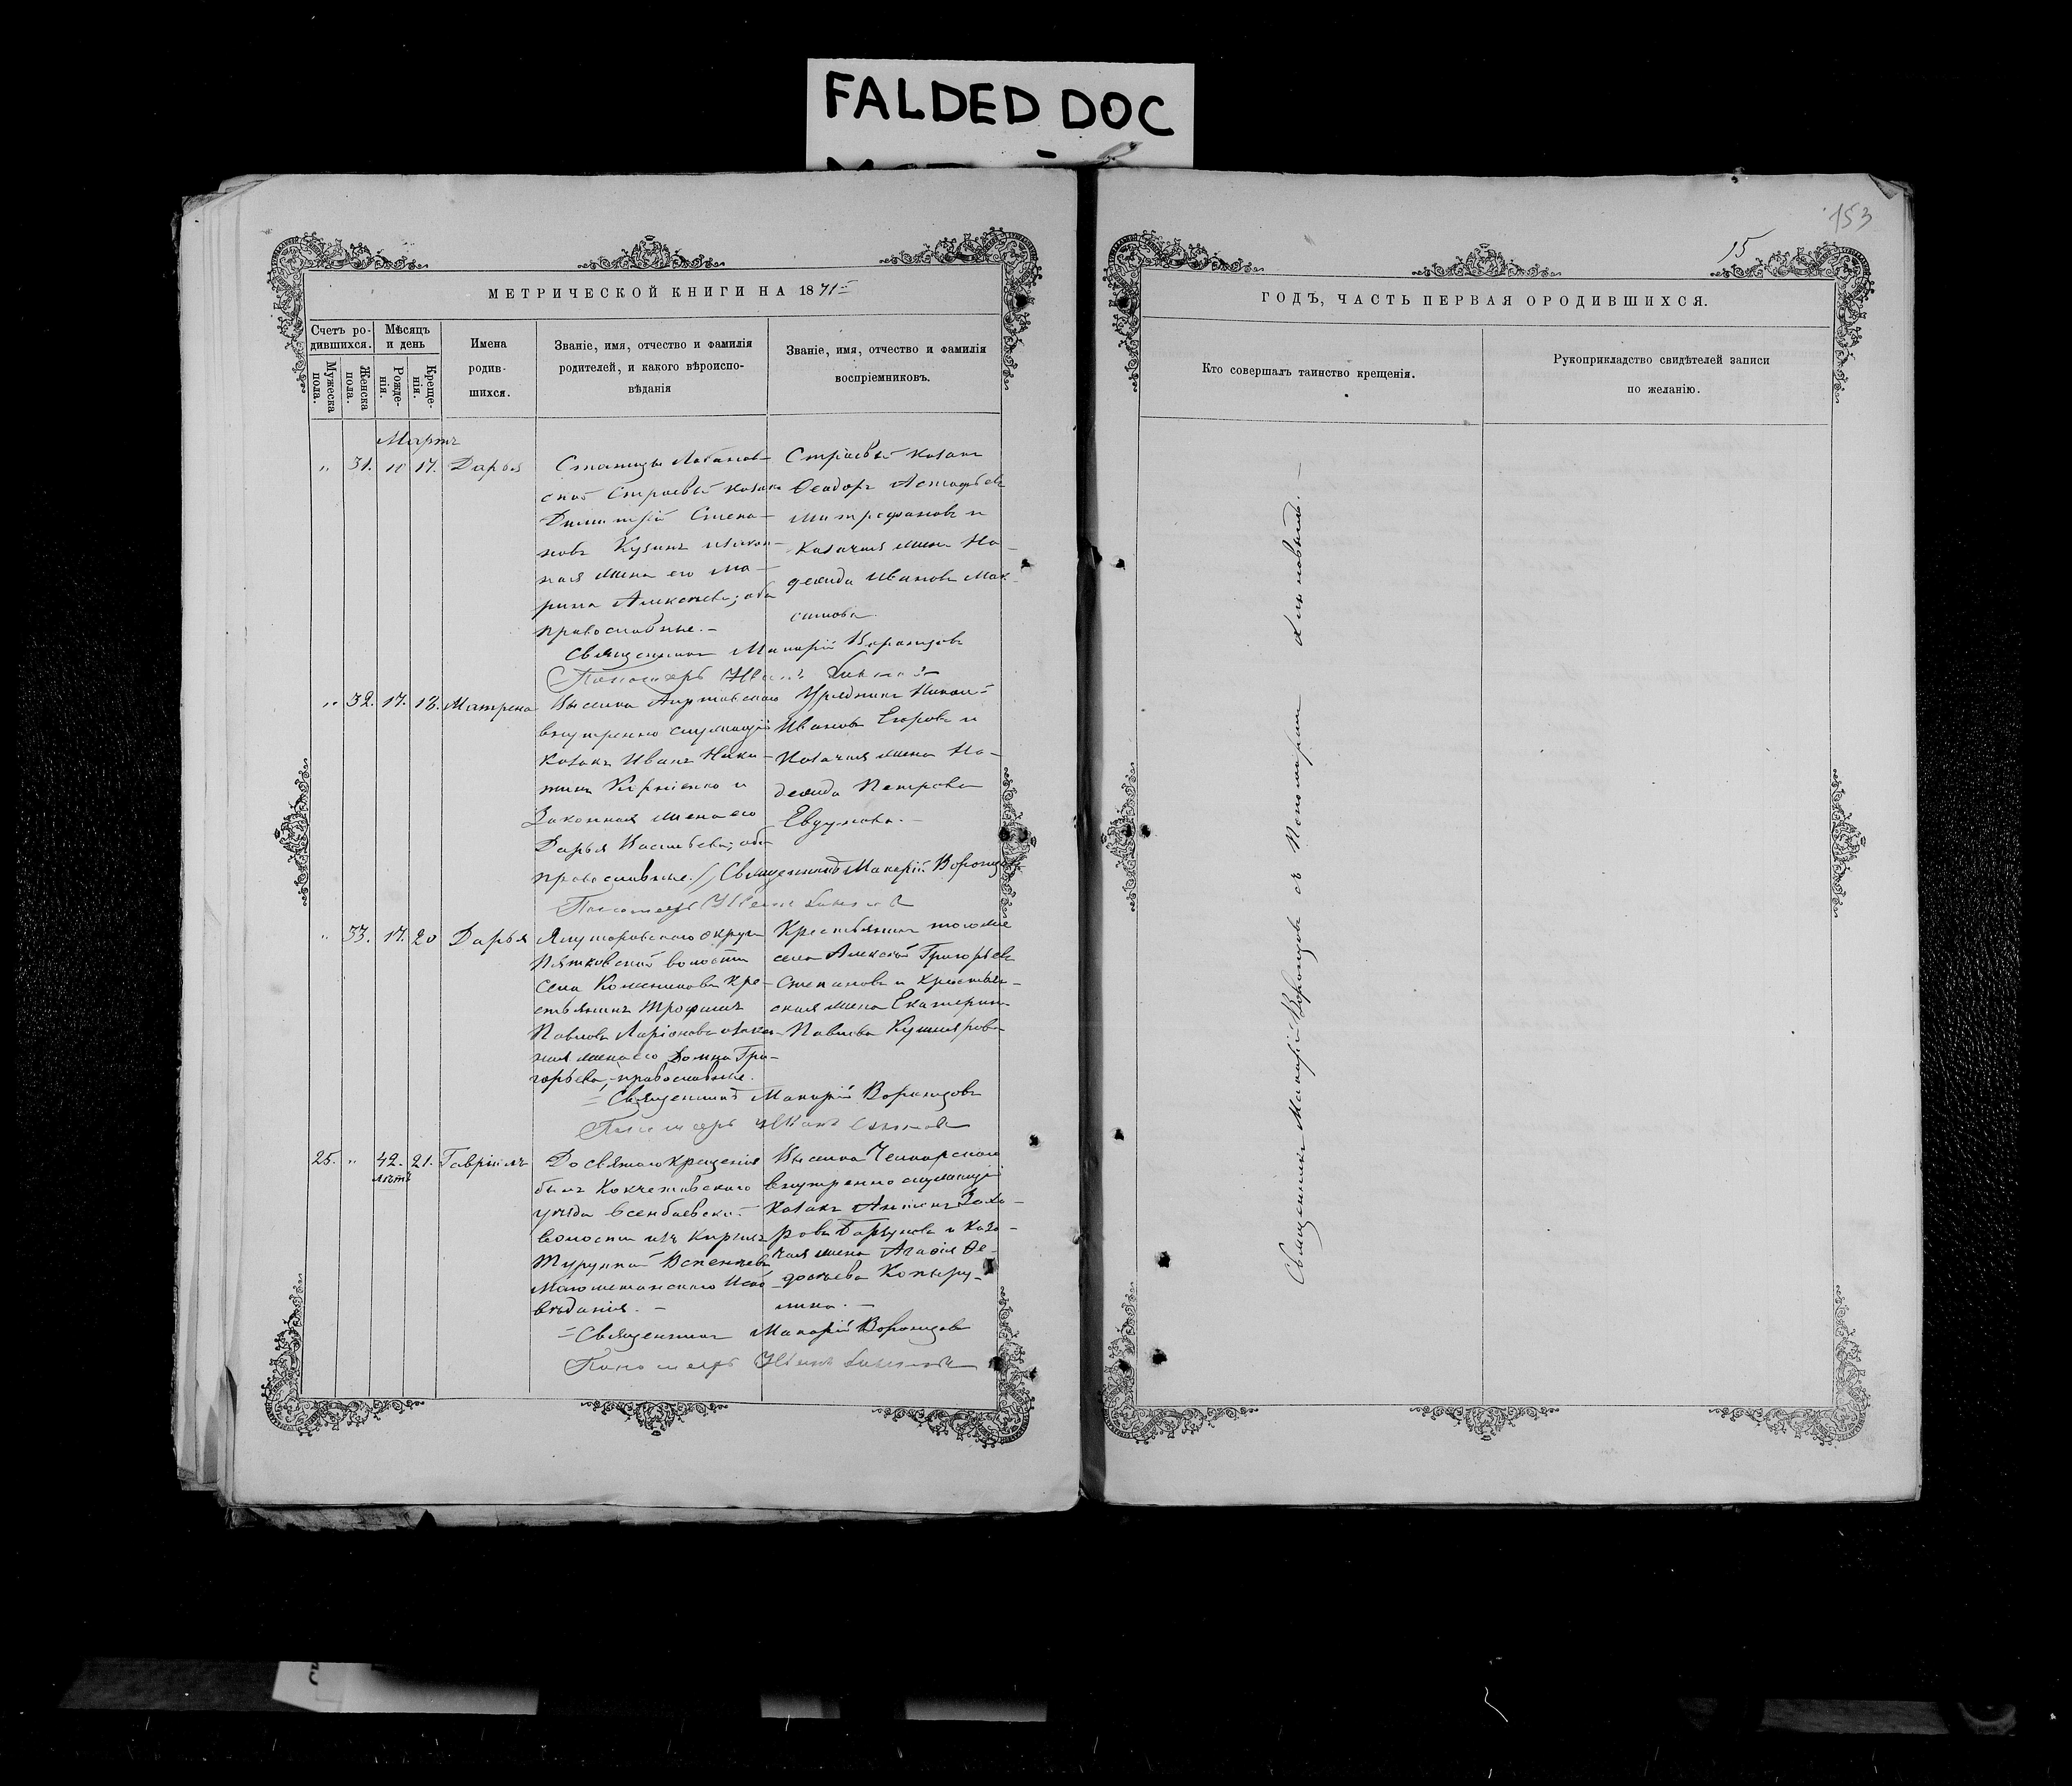 FALDED DOC
153
15
МЕТРИЧЕСКОЙ КНИГИ НА 1871
Счетъ ро-
дившихся.
Мѣсяцъ
и день
Мужеска
пола.
Женска
пола.
Рожде-
нія.
Креще-
нія.
Имена
родив-
шихся.
Званіе, имя, отчество и фамилія
родителей, и какого вѣроиспо-
вѣданія
Званіе, имя, отчество и фамилія
воспріемниковъ.
Мартъ
„ 31. 17. Дарья
Станицы Лобанов-
ской Строевый козакъ
Димитрій Степа-
новъ Кузинъ и закон-
ная жена его Ма-
рина Алексѣева; оба
православные. –
Строевый козакъ
Ѳеодоръ Астафьевъ
Митрофановъ и
Козачья жена На-
дежда Иванова Мак-
симова
Священникъ Макарій Воронцовъ
Пономарь Иванъ
„ 32. 17. 18. Матрена
Выселка Аиртавскаго
внутренно служащій
козакъ Иванъ Ники-
тинъ и
Законная жена его
Дарья Васильева; оба
православные. Священникъ Макарій Воронцовъ
Урядникъ Николай
Ивановъ Егоровъ и
Козачья жена На-
дежда Петрова
Евдумова. –
Пономарь Иванъ
„ 33. 17. 20 Дарья
Ялуторовскаго округа
Пятковской волости
села кре-
стьянинъ Трофимъ
Павловъ Ларіоновъ и закон-
ная жена его Домна Гри-
горьева, православные.
Крестьянинъ того же
села Алексѣй Григорьевъ
Степановъ и крестьян-
ская жена Екатерина
Павлова Кушнярова
Священникъ Макарій Воронцовъ
Пономарь Иванъ
25. „ 42. 21. Гавріилъ
лѣтъ
До святаго крещенія
былъ Кокчетавскаго
уѣзда
волости изъ киргизъ
Магометанскаго Испо-
вѣданія. –
Выселка Челкарскаго
внутренно служащій
Козакъ Антонъ Заха-
ровъ и Каза-
чья жена Агафія Ѳе-
досѣева Копыру-
лина. –
Священникъ Макарій Воронцовъ
Пономарь Иванъ
ГОДЪ, ЧАСТЬ ПЕРВАЯ О РОДИВШИХСЯ.
Кто совершалъ таинство крещенія.
Рукоприкладство свидѣтелей записи
по желанію.
Священникъ Макарій Воронцовъ съ Пономаремъ